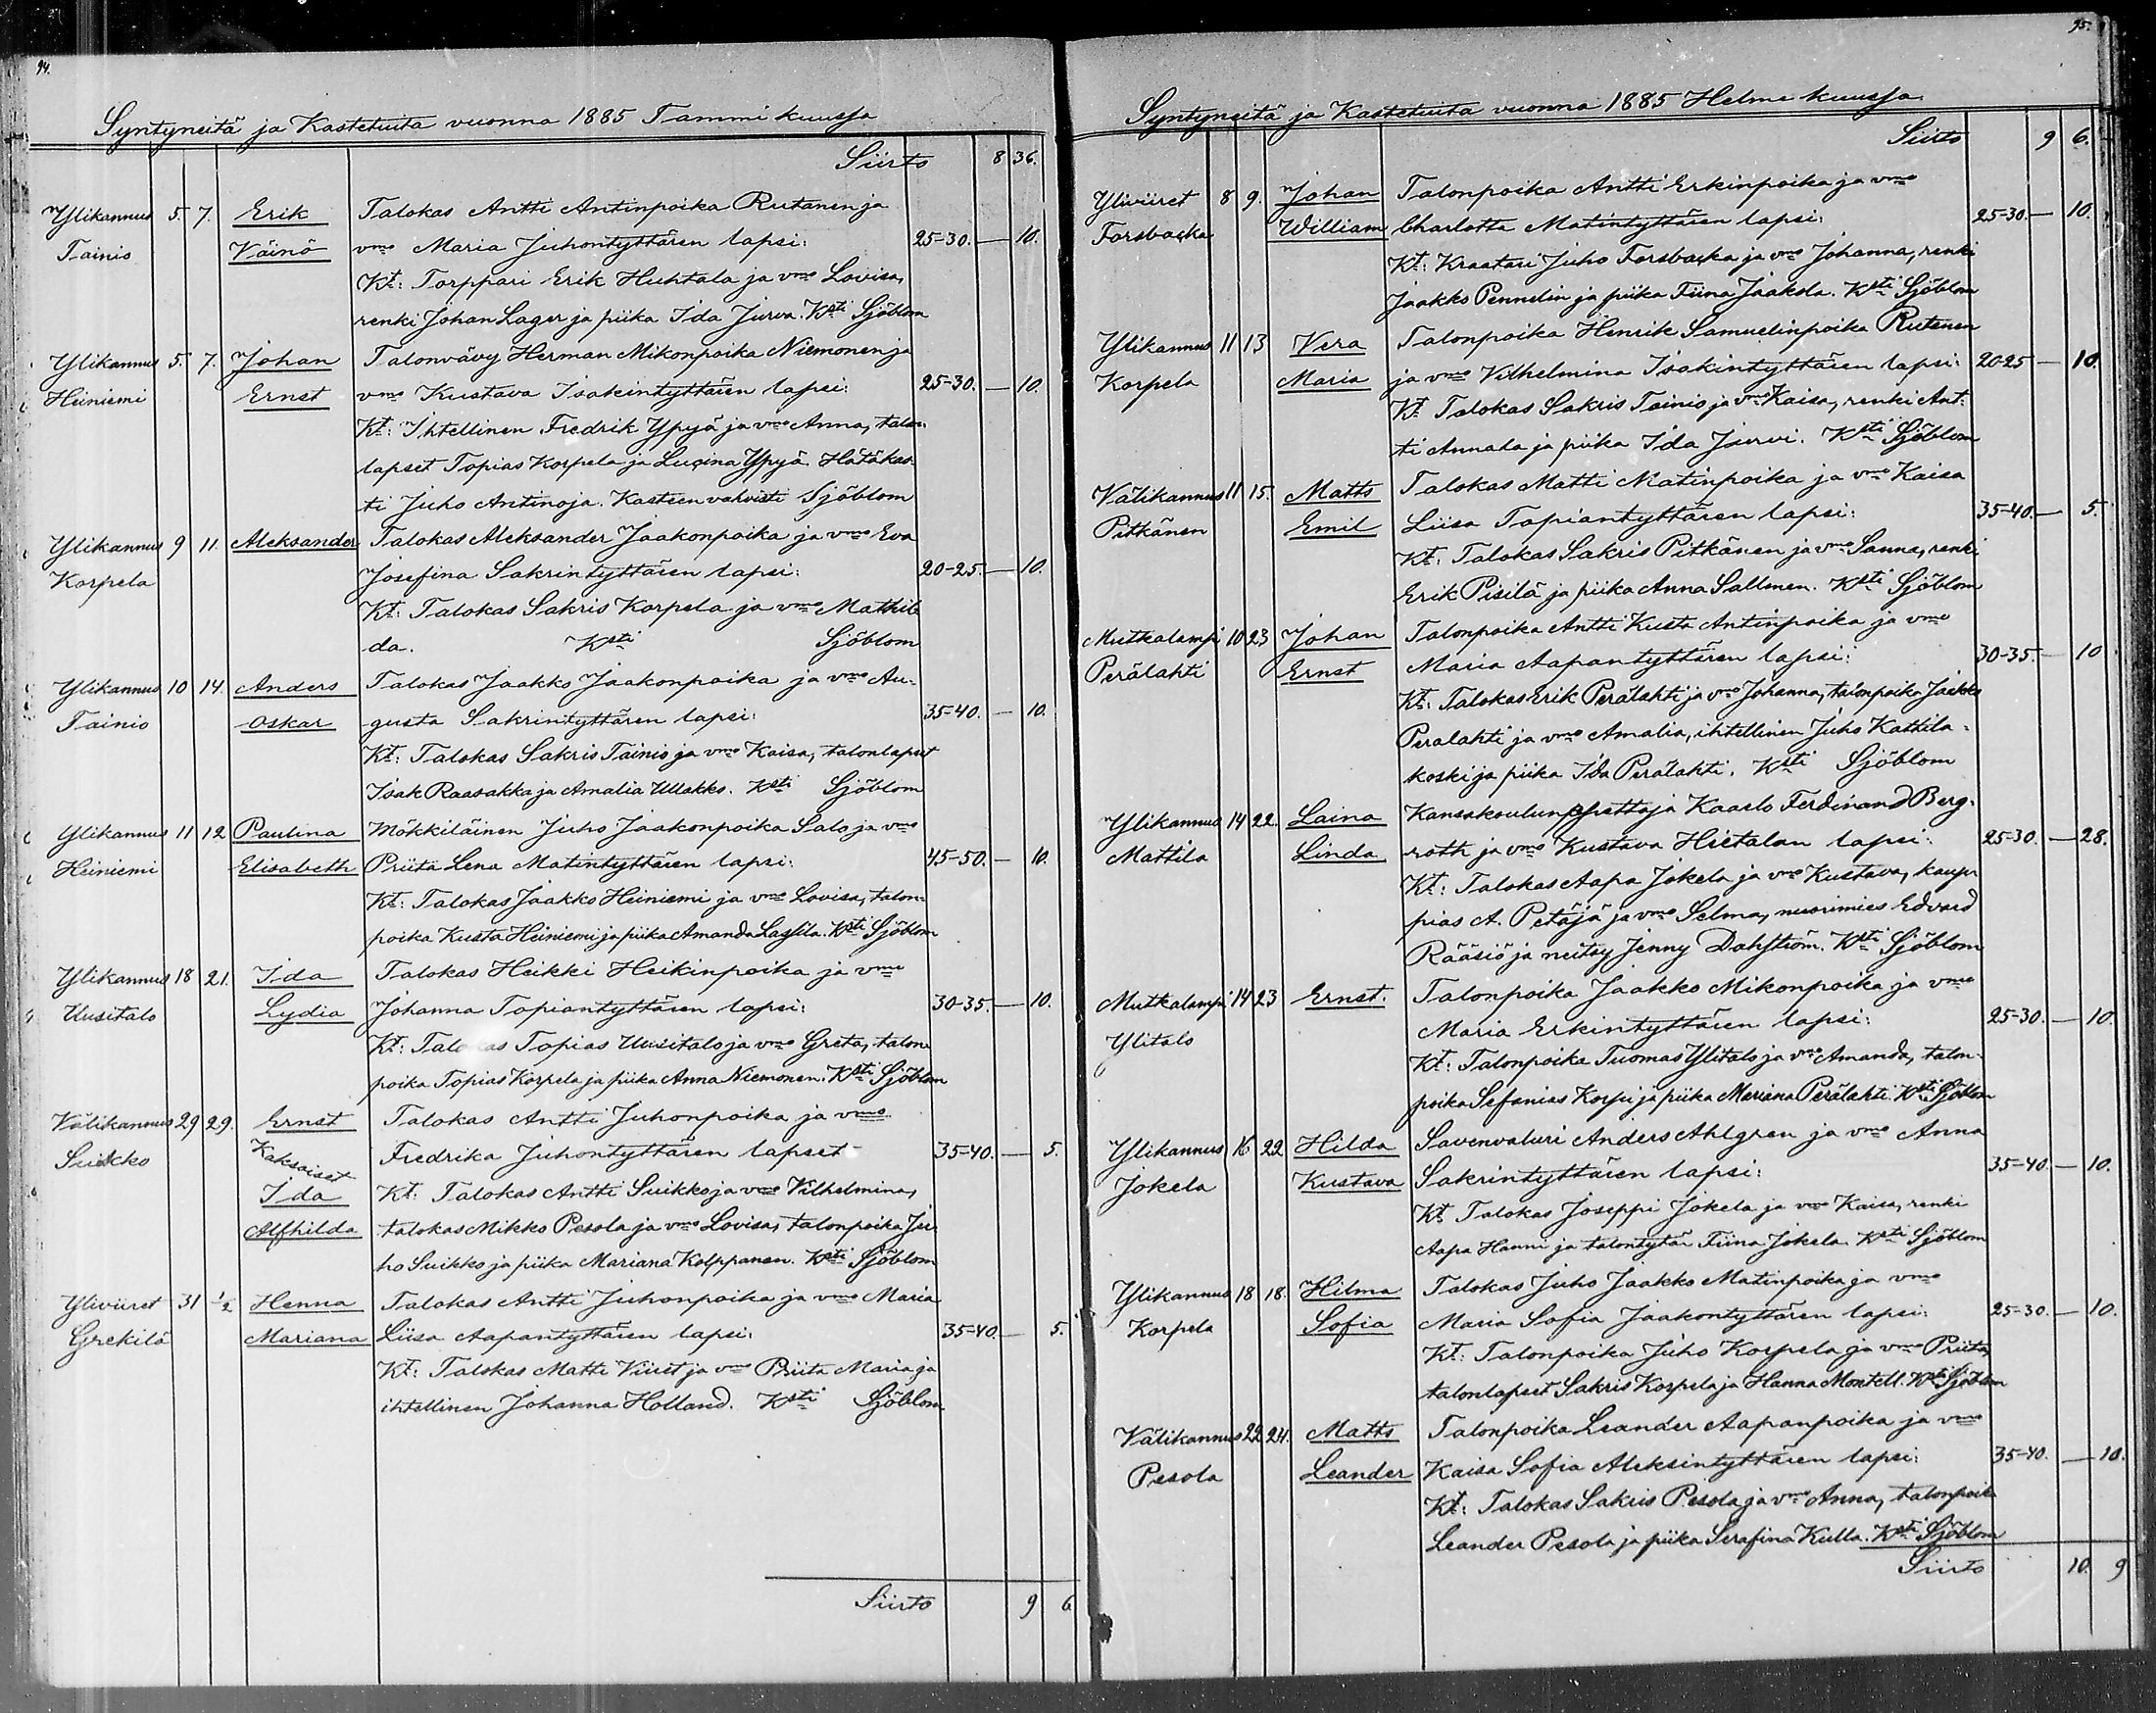 94.
Syntyneitä ja Kastetuita vuonna 1885 Tammi kuussa
Siirto 8 36.
Ylikannus 5. 7. Erik Talokas Antti Antinpoika Rutanen ja
Tainio Väinö vmo Maria Juhontyttären lapsi: 25-30. — 10.
Kt: Torppari Erik Huhtala ja vmo Lovisa,
renki Johan Lager ja piika Ida Jurva. Ksti Sjöblom
Ylikannus 5. 7. Johan Talonvävy Herman Mikonpoika Niemonen ja
Heiniemi Ernst vmo Kustava Isakintyttären lapsi: 25-30. — 10.
Kt: Ihtellinen Fredrik Ypyä ja vmo Anna, talon-
lapset Topias Korpela ja Lusina Ypyä. Hätäkas-
ti Juho Antinoja. Kasteen vahvisti Sjöblom
Ylikannus 9 11. Aleksander Talokas Aleksander Jaakonpoika ja vmo Eva
Korpela Josefina Sakrintyttären lapsi: 20-25. — 10.
Kt: Talokas Sakris Korpela ja vmo Mathil
da. Ksti Sjöblom
Ylikannus 10 14. Anders Talokas Jaakko Jaakonpoika ja vmo Au-
Tainio Oskar gusta Sakrintyttären lapsi: 35-40. — 10.
Kt: Talokas Sakris Tainio ja vmo Kaisa, talonlapset
Isak Raasakka ja Amalia Ullakko. Ksti Sjöblom
Ylikannus 11 12 Paulina Mökkiläinen Juho Jaakonpoika Salo ja vmo
Heiniemi Elisabeth Priita Lena Matintyttären lapsi: 45-50. — 10.
Kt: Talokas Jaakko Heiniemi ja vmo Lovisa, talon-
poika Kusta Heiniemi ja piika Amanda Ksti Sjöblom
Ylikannus 18 21. Ida Talokas Heikki Heikinpoika ja vmo
Uusitalo Lydia Johanna Topiantyttären lapsi: 30-35. — 10.
Kt: Talokas Topias Uusitalo ja vmo Greta, talon-
poika Topias Korpela ja piika Anna Niemonen. Ksti Sjöblom
Välikannus 29 29. Ernst Talokas Antti Juhonpoika ja vmo
Suikko Kaksoiset Fredrika Juhontyttären lapset - 35-40. — 5.
Ida Kt: Talokas Antti Suikko ja vmo Vilhelmina,
Alfhilda talokas Mikko Pesola ja vmo Lovisa, talonpoika Ju-
ho Suikko ja piika Mariana Kolppanen. Ksti Sjöblom
Yliviiret 31 1/2 Henna Talokas Antti Juhonpoika ja vmo Maria
Grekilä Mariana Liisa Aapantyttären lapsi: 35-40. — 5.
Kt: Talokas Matti Viiret ja vmo Priita Maria ja
ihtellinen Johanna Holland. Ksti Sjöblom.
Siirto 9 6
95.
Syntyneitä ja Kastetuita vuonna 1885 Helmi kuussa
Siirto 9 6.
Yliviiret 8 9. Johan Talonpoika Antti Erkinpoika ja vmo
Forsbacka William Charlotta Matintyttären lapsi: 25-30. — 10.
Kt: Kraatari Juho Forsbacka ja vmo Johanna, renki
Jaakko Pennelin ja piika Fiina Jaakola. Ksti Sjöblom
Ylikannus 11 13 Vera Talonpoika Henrik Samuelinpoika Rutanen
Korpela Maria ja vmo Vilhelmina Isakintyttären lapsi: 20-25 — 10.
Kt. Talokas Sakris Tainio ja vmo Kaisa, renki Ant-
ti Annala ja piika Ida Jurvi. Ksti Sjöblom
Välikannus 11 15. Matts Talokas Matti Matinpoika ja vmo Kaisa
Pitkänen Emil Liisa Topiantyttären lapsi: 35-40. — 5.
Kt: Talokas Sakris Pitkänen ja vmo Sanna, renki
Erik Pisilä ja piika Anna Sallmen. Ksti Sjöblom
Mutkalampi 10 23 Johan Talonpoika Antti Kusta Antinpoika ja vmo
Perälahti Ernst Maria Aapantyttären lapsi: 30-35. — 10
Kt: Talokas Erik Perälahti ja vmo Johanna, talonpoika Jaakko
Peralahti ja vmo Amalia, ihtellinen Juho Kattila-
koski ja piika Ida Perälahti. Ksti Sjöblom
Ylikannus 14 22. Laina Kansakoulunopettaja Kaarlo Ferdinand Berg-
Mattila Linda roth ja vmo Kustava Hietalan lapsi: 25-30. — 28.
Kt: Talokas Aapa Jokela ja vmo Kustava, kaup-
pias A. Petäjä ja vmo Selma, nuorimies Edvard
Rääsiö ja neitsy Jenny Dahlström. Ksti Sjöblom
Mutkalampi 14 23 Ernst. Talonpoika Jaakko Mikonpoika ja vmo
Ylitalo Maria Erkintyttären lapsi: 25-30. — 10.
Kt: Talonpoika Tuomas Ylitalo ja vmo Amanda, talon-
poika Sefanias Korpi ja piika Mariana Perälahti. Ksti Sjöblom
Ylikannus 16 22 Hilda Savenvaluri Anders Ahlgren ja vmo Anna
Jokela Kustava Sakrintyttären lapsi: 35-40. — 10.
Kt. Talokas Joseppi Jokela ja vmo Kaisa, renki
Aapa Hanni ja talontytär Fiina Jokela. Ksti Sjöblom
Ylikannus 18 18. Hilma Talokas Juho Jaakko Matinpoika ja vmo
Korpela Sofia Maria Sofia Jaakontyttären lapsi: 25-30. — 10.
Kt: Talonpoika Juho Korpela ja vmo Priita,
talonlapset Sakris Korpela ja Hanna Montell. Ksti Sjöblom
Välikannus 22 24. Matts Talonpoika Leander Aapanpoika ja vmo
Pesola Leander Kaisa Sofia Aleksintyttären lapsi: 35-40. — 10.
Kt: Talokas Sakris Pesola ja vmo Anna, talonpoika
Leander Pesola ja piika Serafina Kulla. Ksti Sjöblom
Siirto 10. 9